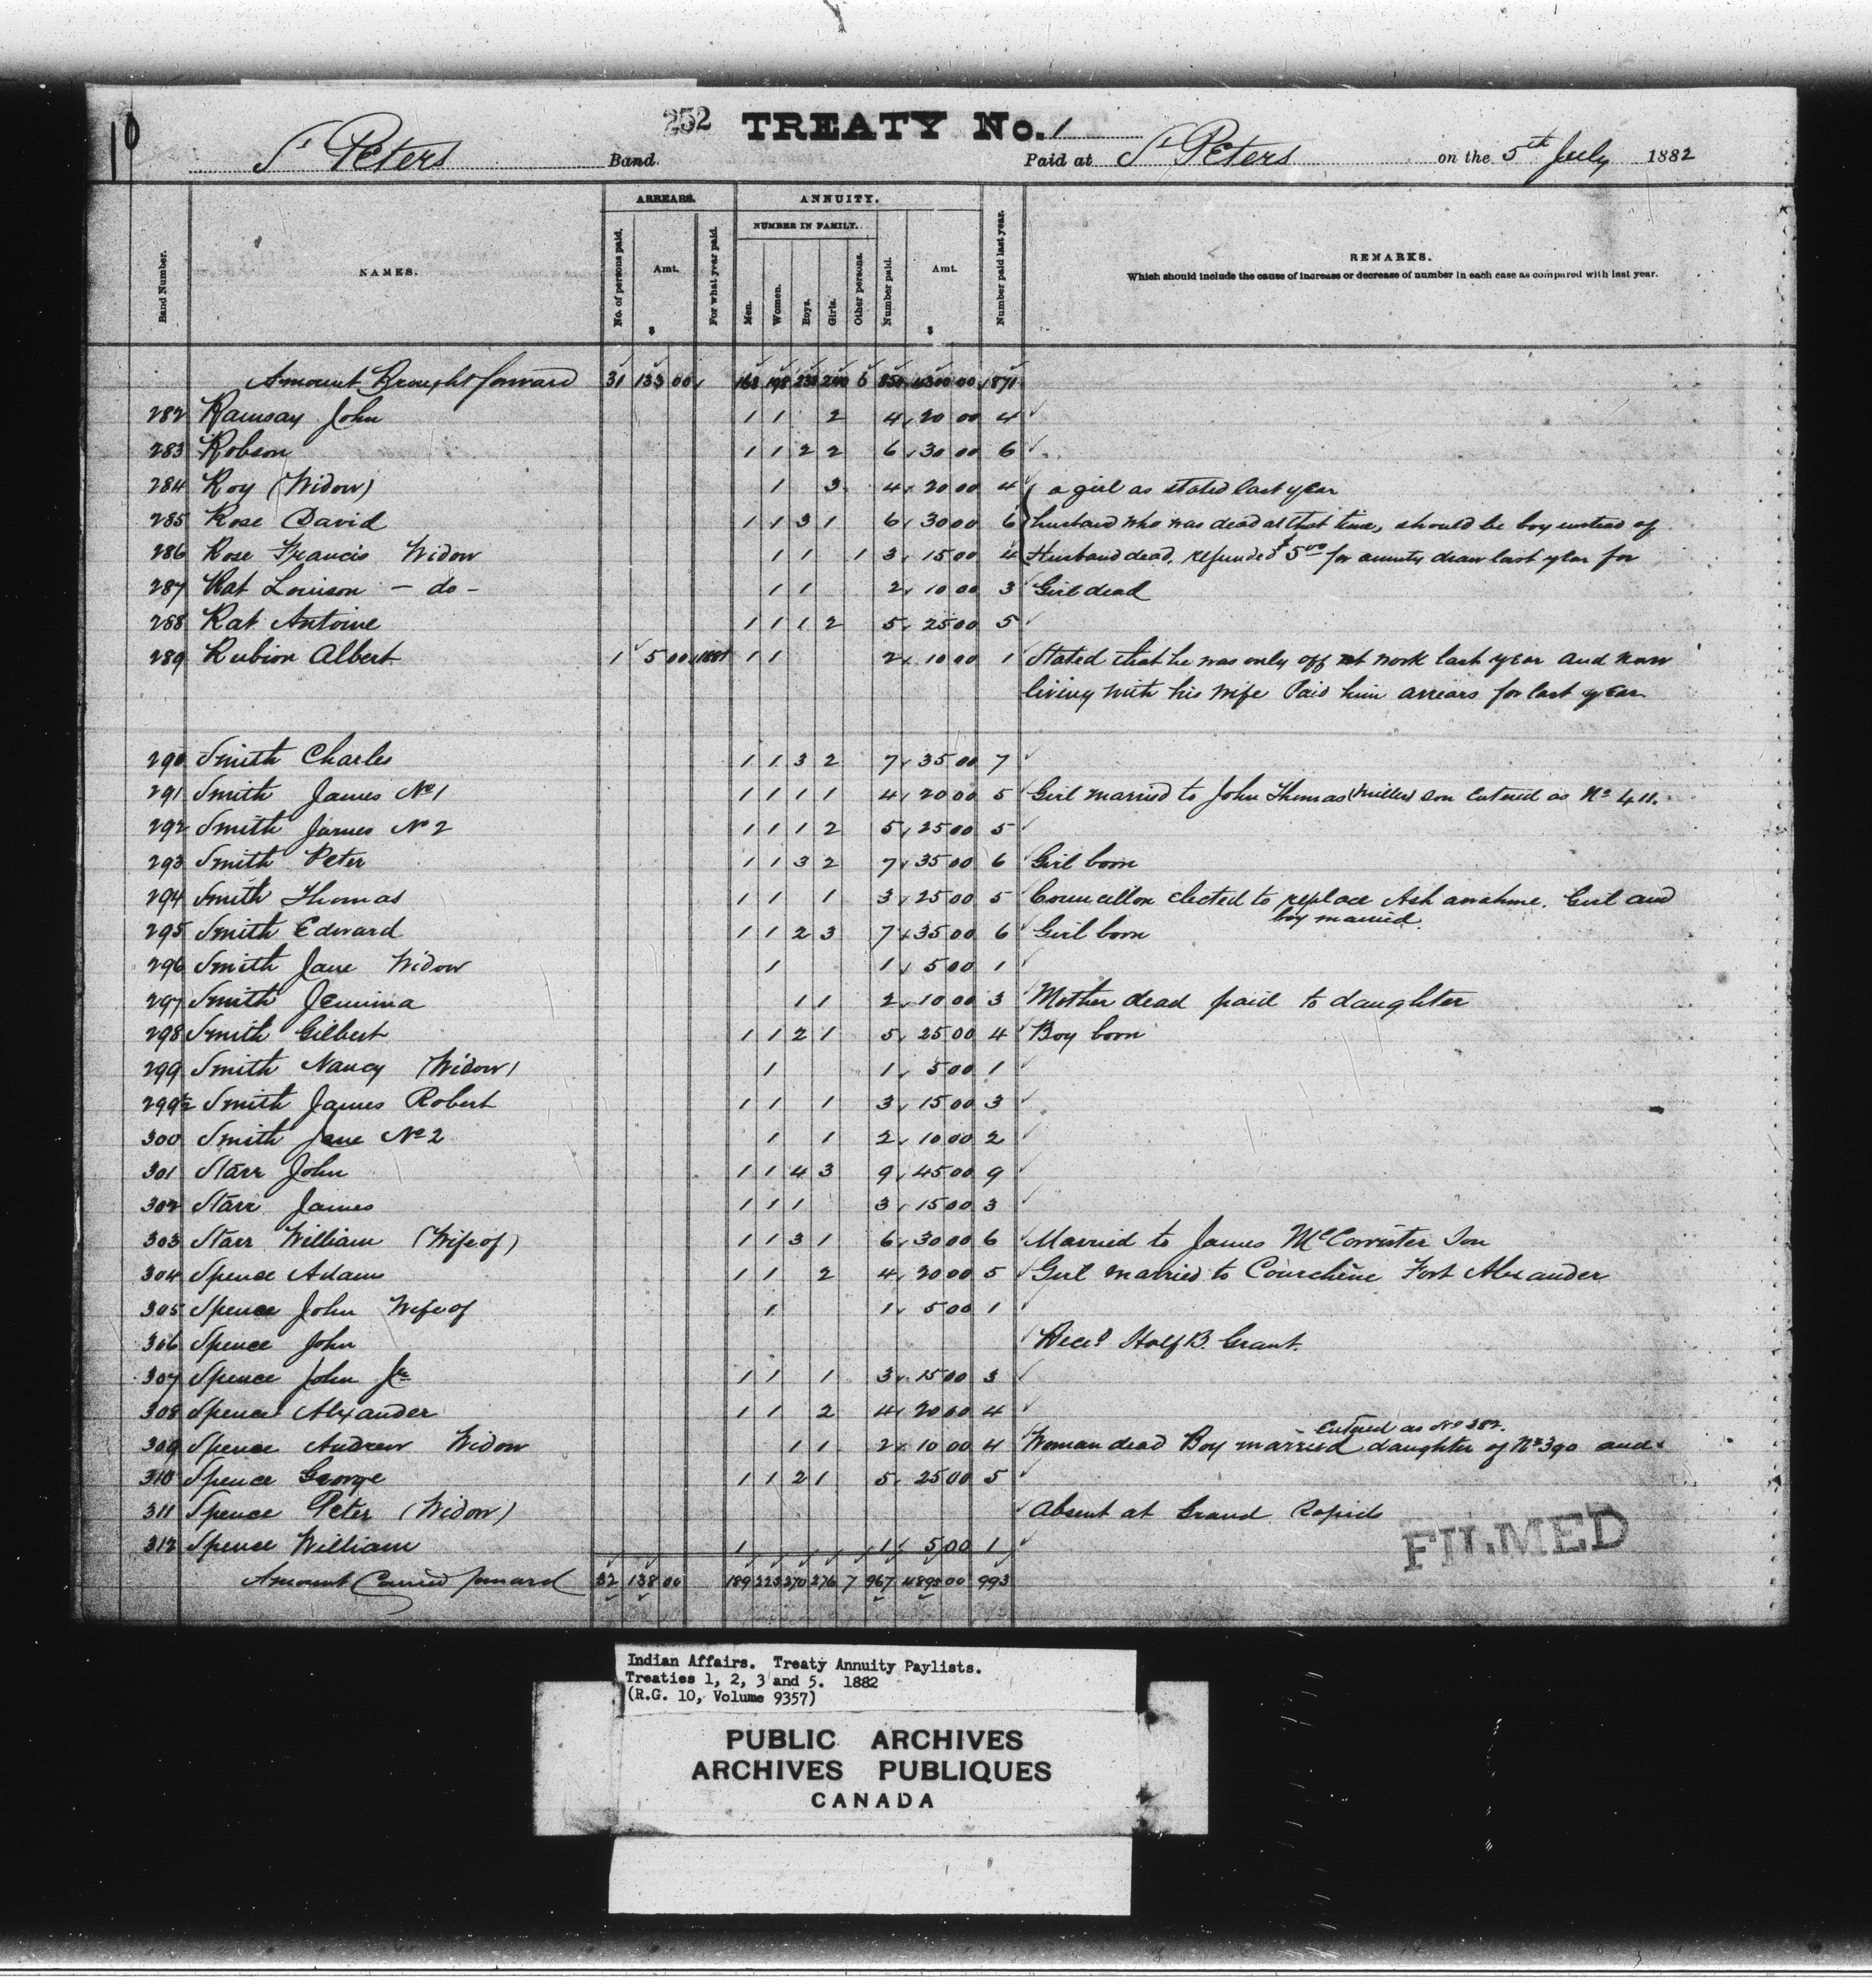 10
252 TREATY No. 1
St Peters Band. Paid at St Peters on the 5th July 1882
ARREARS. ANNUITY.
NUMBER IN FAMILY.
Band Number. NAMES. No. of persons paid. Amt. $ For what year paid. Men. Women. Boys. Girls. Other persons. Number paid. Amt. $ Number paid last year. REMARKS.
Which should include the cause of increase or decrease of number in each case as compared with last year.
Amount Brought forward 31 133 00 6 4300 00 871
282 Ramsay John 1 1 2 4 20 00 4
283 Robson 1 1 2 2 6 30 00 6
284 Roy (Widow) 1 3 4 20 00 4 a girl as stated last year
285 Rose David 1 1 3 1 6 30 00 6 husband who was dead at that time, should be boy instead of
286 Rose Francis Widow 1 1 1 3 15 00 4 Husband dead, refunded $5.00 for annuity draw last year for
287 Rat Louison - do - 1 1 2 10 00 3 Girl dead
288 Rat Antoine 1 1 1 2 5 25 00 5
289 Rubion Albert 1 5 00 1881 1 1 2 10 00 1 Stated that he was only off at work last year and now
living with his wife Paid him arrears for last year.
290 Smith Charles 1 1 3 2 7 35 00 7
291 Smith James No 1 1 1 1 1 4 20 00 5 Girl married to John Thomas (Miller) son Entered as No 411.
292 Smith James No 2 1 1 1 2 5 25 00 5
293 Smith Peter 1 1 3 2 7 35 00 6 Girl born
294 Smith Thomas 1 1 1 3 25 00 5 Councillor elected to replace Girl and
boy married.
295 Smith Edward 1 1 2 3 7 35 00 6 Girl born
296 Smith Jane Widow 1 1 5 00 1
297 Smith Jemima 1 1 2 10 00 3 Mother dead paid to daughter
298 Smith Gilbert 1 1 2 1 5 25 00 4 Boy born
299 Smith Nancy (Widow) 1 1 5 00 1
299½ Smith James Robert 1 1 1 3 15 00 3
300 Smith Jane No 2 1 1 2 10 00 2
301 Starr John 1 1 4 3 9 45 00 9
302 Starr James 1 1 1 3 15 00 3
303 Starr William (Wife of) 1 1 3 1 6 30 00 6 Married to James McCorrister Son
304 Spence Adam 1 1 2 4 20 00 5 Girl married to Courchêne Fort Alexander
305 Spence John Wife of 1 1 5 00 1
306 Spence John Recd Half B. Grant.
307 Spence John Jr 1 1 1 3 15 00 3
308 Spence Alexander 1 1 2 4 20 00 4
Entered as No 382.
309 Spence Andrew Widow 1 1 2 10 00 4 Woman dead Boy married daughter of No 390 and
310 Spence George 1 1 2 1 5 25 00 5
311 Spence Peter (Widow) Absent at Grand Rapids
312 Spence William 1 1 5 00 1
Amount Carried forward 32 138 00 189 225 270 276 7 967 4895 00 993
FILMED
Indian Affairs. Treaty Annuity Paylists.
Treaties 1, 2, 3 and 5. 1882
(R.G. 10, Volume 9357)
PUBLIC ARCHIVES
ARCHIVES PUBLIQUES
CANADA